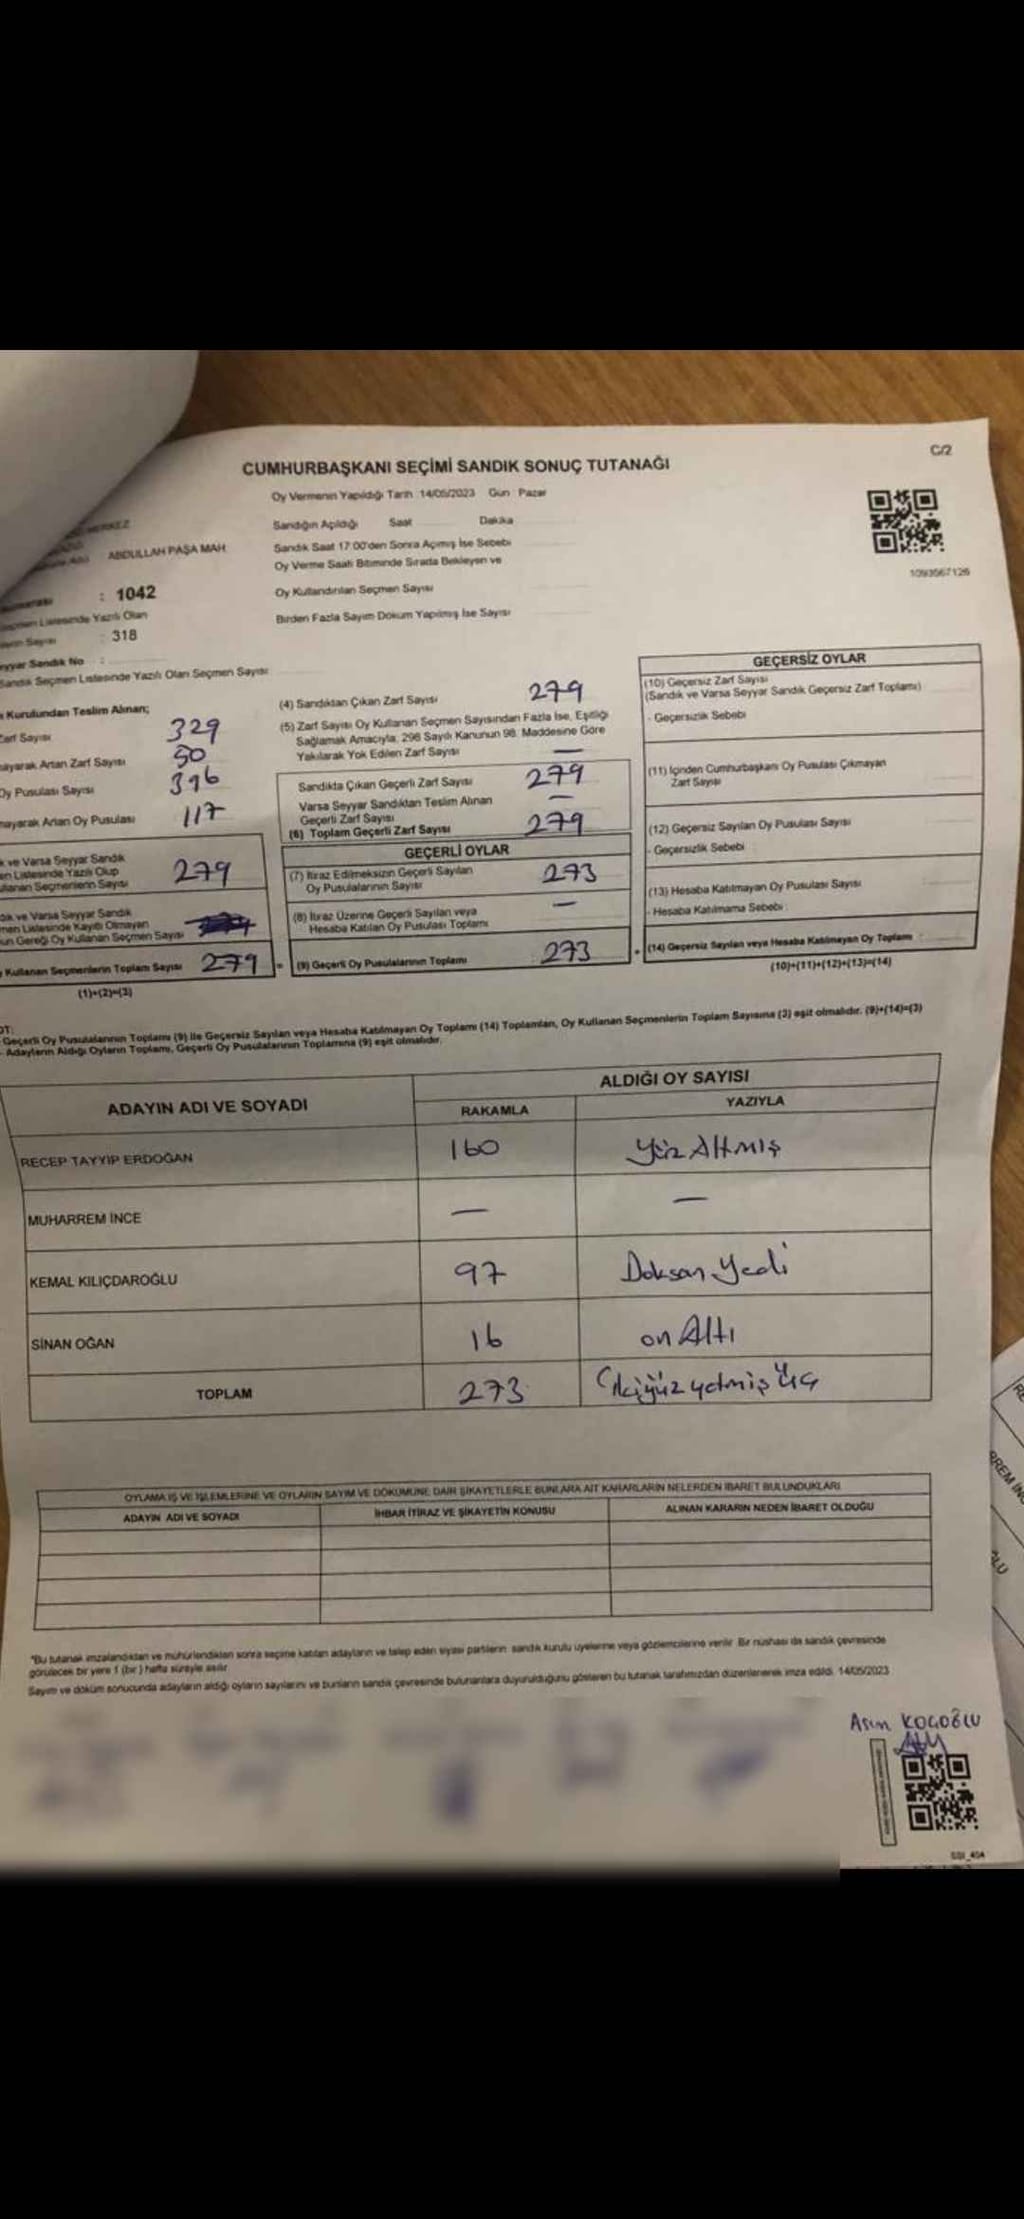 C/2
CUMHURBAŞKANI SEÇİMİ SANDIK SONUÇ TUTANAĞI
Oy Vermenin Yapıldığı Tarih 14/05/2023 Gün : Pazar
MERKEZ
ABDULLAH PAŞA MAH
: 1042
Listesinde Yazılı Olan
Sayısı : 318
Sandık No :
Sandık Seçmen Listesinde Yazılı Olan Seçmen Sayısı
Sandığın Açıldığı Saat Dakika
Sandık Saat 17:00'den Sonra Açımış İse Sebebi
Oy Verme Saati Bitiminde Sırada Bekleyen ve
Oy Kullandırılan Seçmen Sayısı
Birden Fazla Sayım Döküm Yapılmış İse Sayısı
1093567126
Kurulundan Teslim Alınan;
Zarf Sayısı 329
Artan Zarf Sayısı 50
Oy Pusulası Sayısı 396
Artan Oy Pusulası 117
k ve Varsa Seyyar Sandık
en Listesinde Yazılı Olup
Seçmenlerin Sayısı 279
ve Varsa Seyyar Sandık
Listesinde Kayıtlı Olmayan
Gereği Oy Kullanan Seçmen Sayısı
Kullanan Seçmenlerin Toplam Sayısı 279 =
(1)+(2)=(3)
(4) Sandıktan Çıkan Zarf Sayısı 279
(5) Zarf Sayısı Oy Kullanan Seçmen Sayısından Fazla İse, Eşitliği
Sağlamak Amacıyla, 298 Sayılı Kanunun 98. Maddesine Göre
Yakılarak Yok Edilen Zarf Sayısı —
Sandıkta Çıkan Geçerli Zarf Sayısı 279
Varsa Seyyar Sandıktan Teslim Alınan
Geçerli Zarf Sayısı —
(6) Toplam Geçerli Zarf Sayısı 279
GEÇERLİ OYLAR
(7) İtiraz Edilmeksizin Geçerli Sayılan
Oy Pusulalarının Sayısı 273
(8) İtiraz Üzerine Geçerli Sayılan veya
Hesaba Katılan Oy Pusulası Toplamı —
(9) Geçerli Oy Pusulalarının Toplamı : 273
GEÇERSİZ OYLAR
(10) Geçersiz Zarf Sayısı
(Sandık ve Varsa Seyyar Sandık Geçersiz Zarf Toplamı)
- Geçersizlik Sebebi
(11) İçinden Cumhurbaşkanı Oy Pusulası Çıkmayan
Zarf Sayısı
(12) Geçersiz Sayılan Oy Pusulası Sayısı
- Geçersizlik Sebebi :
(13) Hesaba Katılmayan Oy Pusulası Sayısı
- Hesaba Katılmama Sebebi :
+ (14) Geçersiz Sayılan veya Hesaba Katılmayan Oy Toplamı :
(10)+(11)+(12)+(13)=(14)
Geçerli Oy Pusulalarının Toplamı (9) ile Geçersiz Sayılan veya Hesaba Katılmayan Oy Toplamı (14) Toplamları, Oy Kullanan Seçmenlerin Toplam Sayısına (3) eşit olmalıdır. (9)+(14)=(3)
- Adayların Aldığı Oyların Toplamı, Geçerli Oy Pusulalarının Toplamına (9) eşit olmalıdır.
ADAYIN ADI VE SOYADI
ALDIĞI OY SAYISI
RAKAMLA YAZIYLA
RECEP TAYYİP ERDOĞAN 160 Yüz Altmış
MUHARREM İNCE — —
KEMAL KILIÇDAROĞLU 97 Doksan Yedi
SİNAN OĞAN 16 on Altı
TOPLAM 273 İkiyüz yetmiş Üç
OYLAMA İŞ VE İŞLEMLERİNE VE OYLARIN SAYIM VE DÖKÜMÜNE DAİR ŞİKAYETLERLE BUNLARA AİT KARARLARIN NELERDEN İBARET BULUNDUKLARI
ADAYIN ADI VE SOYADI İHBAR İTİRAZ VE ŞİKAYETİN KONUSU ALINAN KARARIN NEDEN İBARET OLDUĞU
*Bu tutanak imzalandıktan ve mühürlendikten sonra seçime katılan adayların ve talep eden siyasi partilerin sandık kurulu üyelerine veya gözlemcilerine verilir. Bir nüshası da sandık çevresinde
görülecek bir yere 1 (bir ) hafta süreyle asılır
Sayım ve döküm sonucunda adayların aldığı oyların sayılarını ve bunların sandık çevresinde bulunanlara duyurulduğunu gösteren bu tutanak tarafımızdan düzenlenerek imza edildi. 14/05/2023
Asım KOÇOĞLU